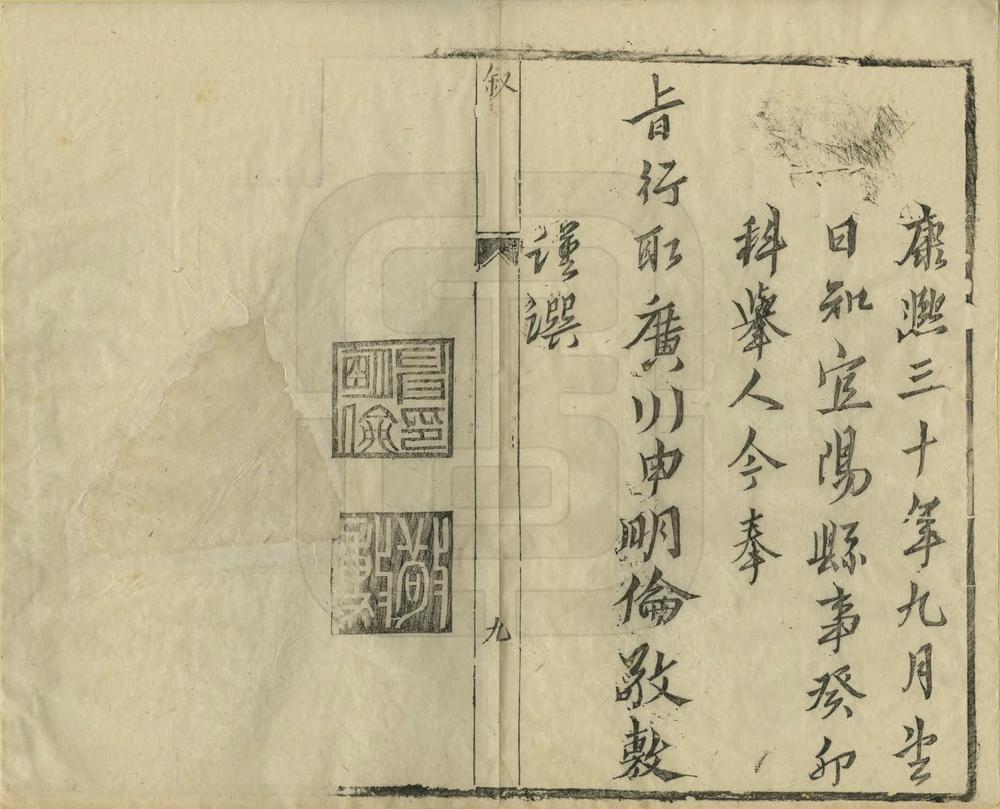 康熙三十年九月望
日知宜陽縣事癸卯
科舉人今奉
旨行取廣川申明倫敬敷
謹撰
叙
九
申印明倫